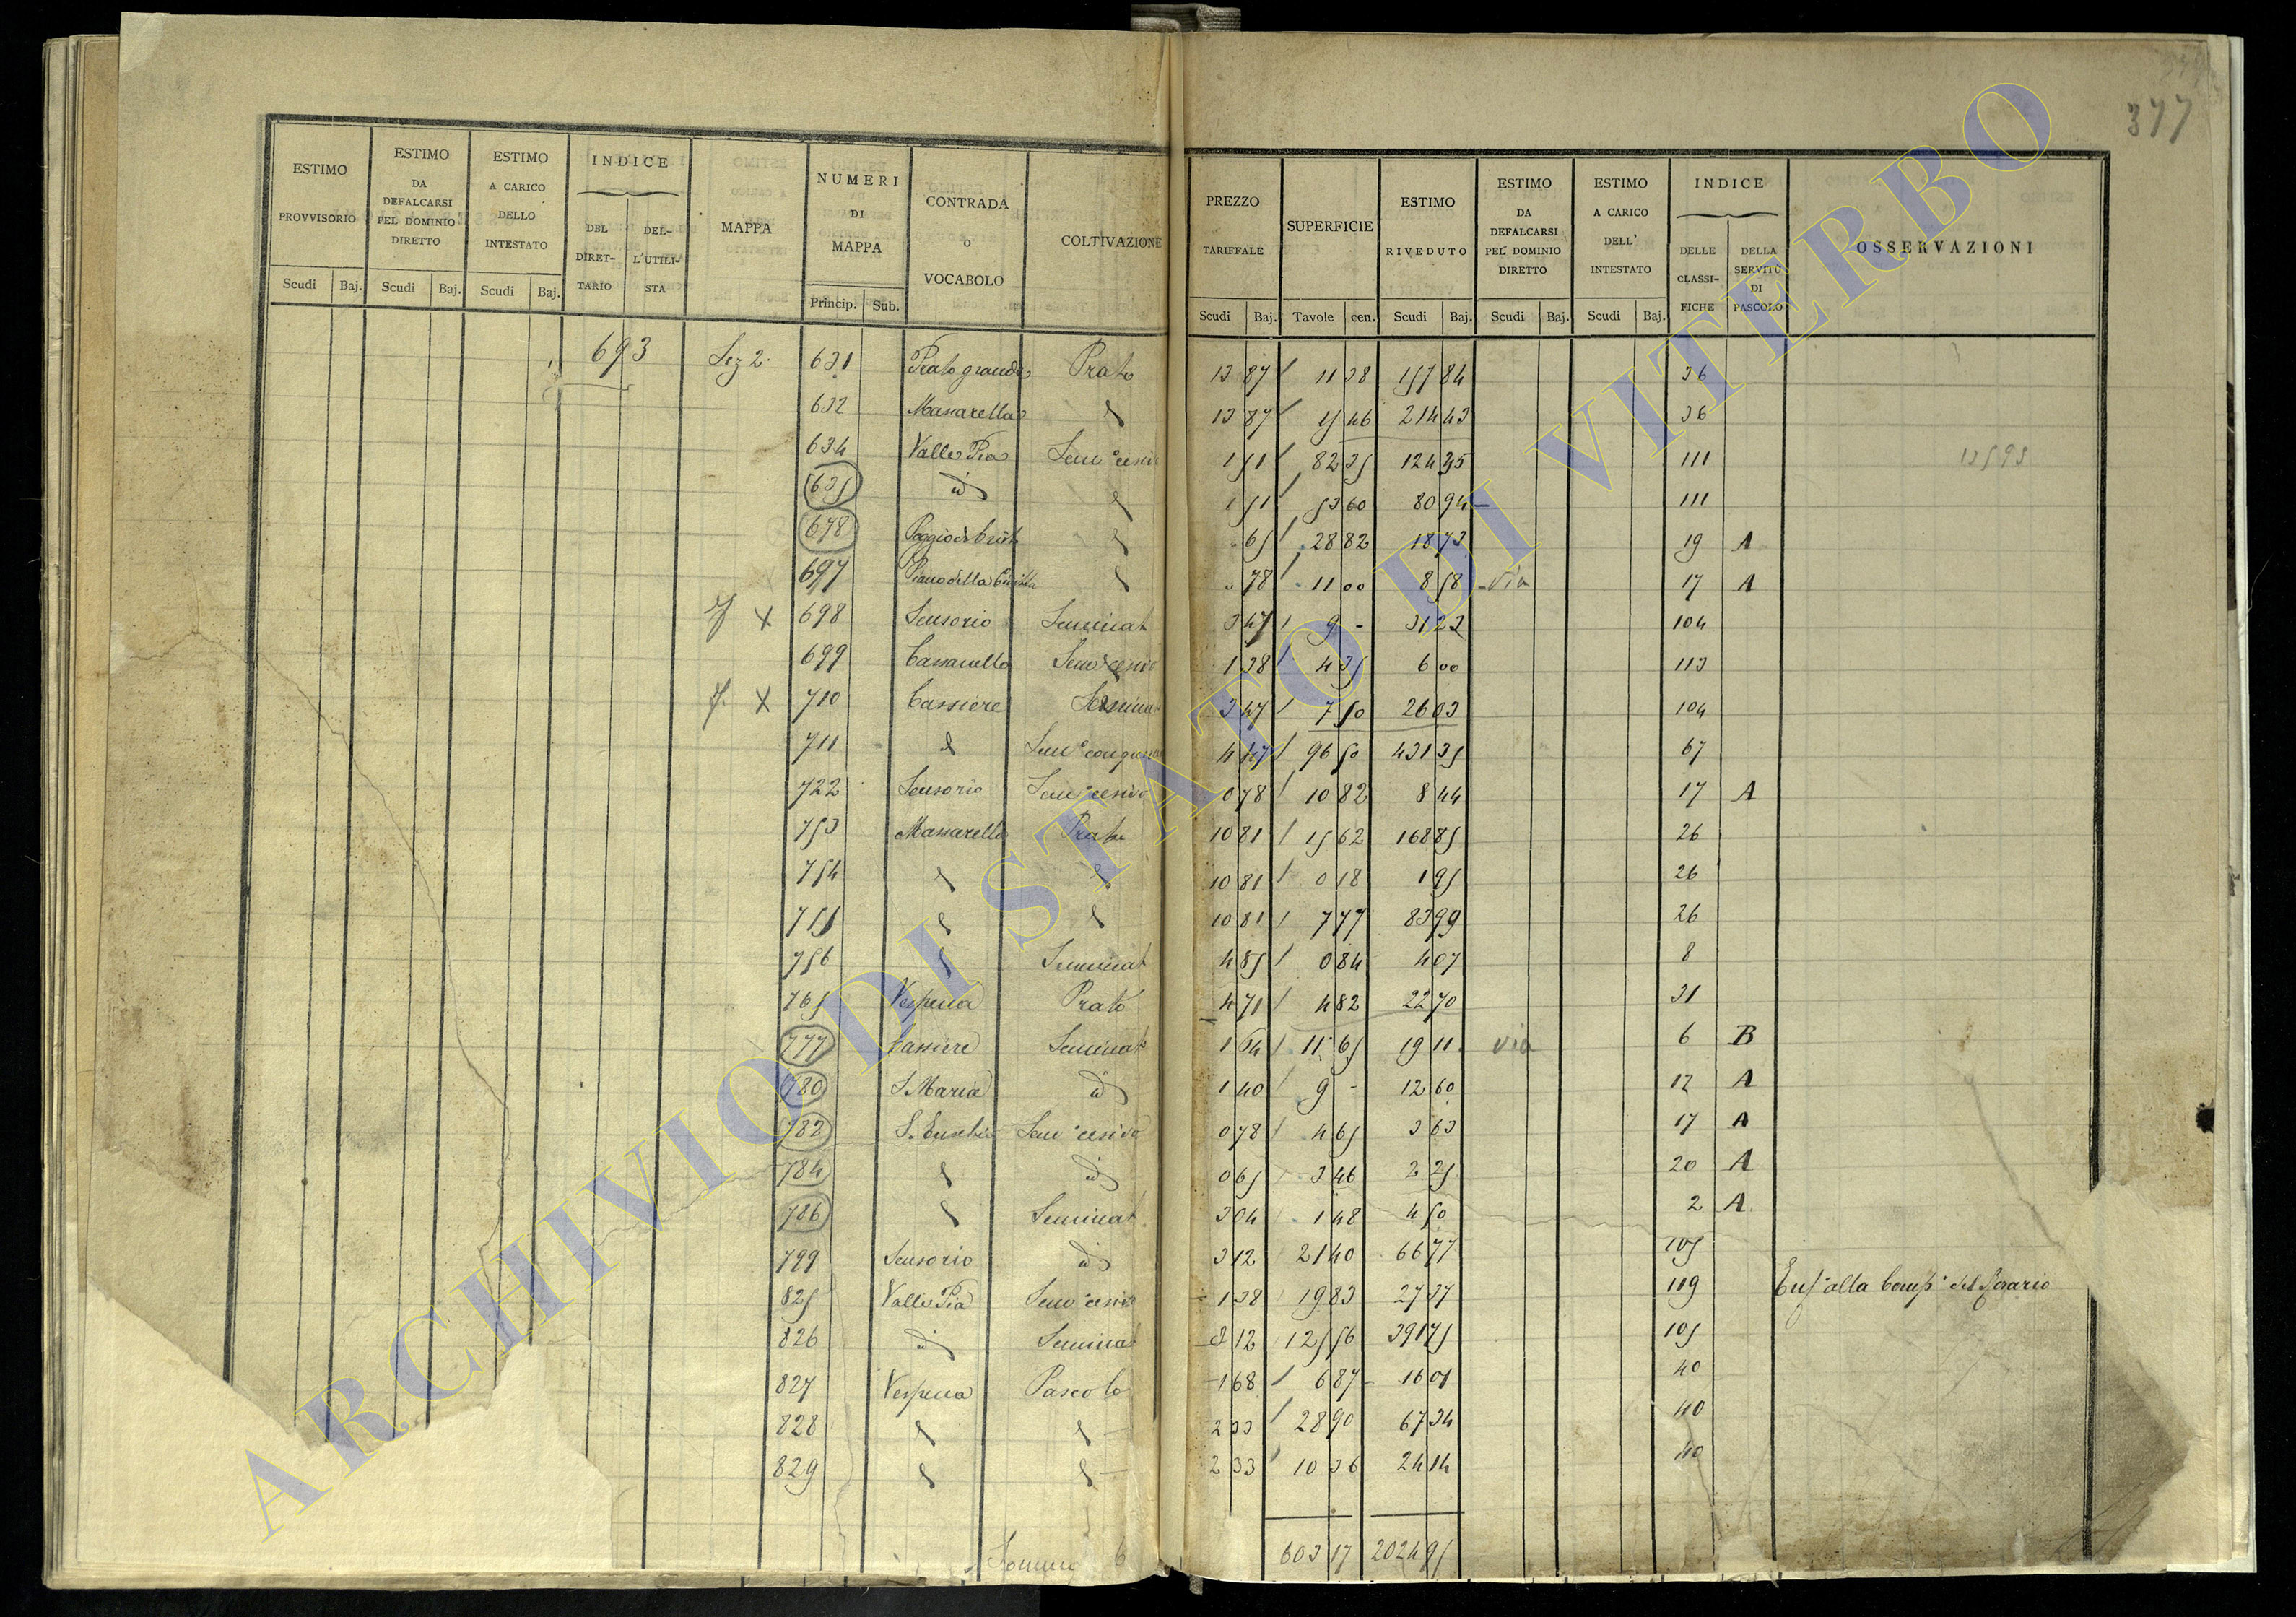 377
ESTIMO PROVVISORIO | ESTIMO DA DEFALCARSI PEL DOMINIO DIRETTO | ESTIMO A CARICO DELLO INTESTATO | INDICE DEL DIRETTARIO | DELL'UTILISTA | MAPPA | NUMERI DI MAPPA | CONTRADA o VOCABOLO | COLTIVAZIONE | PREZZO TARIFFALE | SUPERFICIE | ESTIMO RIVEDUTO | ESTIMO DA DEFALCARSI PEL DOMINIO DIRETTO | ESTIMO A CARICO DELL' INTESTATO | INDICE DELLE CLASSIFICHE | DELLA SERVITÙ DI PASCOLO | OSSERVAZIONI
Scudi Baj. Scudi Baj. Scudi Baj. Princip. Sub. Scudi Baj. Tavole cen. Scudi Baj. Scudi Baj. Scudi Baj.
693 Sez 2 631 Prato grande Prato 13 87 11 38 157 84 36
632 Massarella 13 87 15 46 214 43 36
634 Valle Pia Sem° 1 51 82 35 124 35 111 13593
635 id 1 51 53 60 80 94 111
678 Poggio di 65 28 82 18 73 19 A
697 Piano della 78 11 00 8 58 via 17 A
X 698 Sensorio Seminat 3 47 9 - 31 23 104
699 1 38 4 35 6 00 113
X 710 Cassiere Semina 3 47 7 50 26 03 104
711 Sem° 4 47 96 50 431 35 67
722 Sensorio Sem° 0 78 10 82 8 44 17 A
753 Massarella Prato 10 81 15 62 168 85 26
754 10 81 0 18 1 95 26
755 10 81 7 77 83 99 26
756 Seminat 4 85 0 84 4 07 8
765 Vespena Prato 4 71 4 82 22 70 31
777 Cassiere Seminat 1 64 11 65 19 11 via 6 B
780 S. Maria id 1 40 9 - 12 60 12 A
782 S. Eusebio Sem° 0 78 4 65 3 63 17 A
784 id 0 65 3 46 2 25 20 A
786 Seminat 3 04 1 48 4 50 2 A
799 Sensorio id 3 12 21 40 66 77 105
825 Valle Pia Sem° 1 38 19 83 27 37 119 Enf° alla
826 id Seminat 3 12 125 56 391 75 105
827 Vespena Pascolo 1 68 6 87 16 01 40
828 2 33 28 90 67 34 40
829 2 33 10 36 24 14 40
Somma 603 17 2024 95
ARCHIVIO DI STATO DI VITERBO